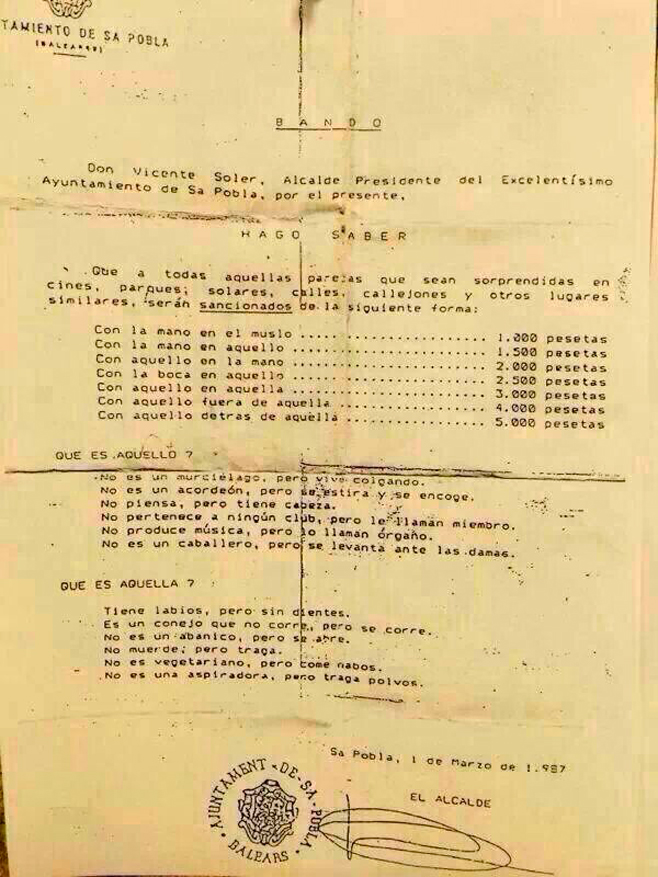 TAMIENTO DE SA POBLA
(BALEARES)
BANDO
Don Vicente Soler, Alcalde Presidente del Excelentísimo
Ayuntamiento de Sa Pobla, por el presente,
HAGO SABER
Que a todas aquellas parejas que sean sorprendidas en
cines, parques; solares, calles, callejones y otros lugares
similares, serán sancionados de la siguiente forma:
Con la mano en el muslo ........................ 1.000 pesetas
Con la mano en aquello ......................... 1.500 pesetas
Con aquello en la mano ......................... 2.000 pesetas
Con la boca en aquello ......................... 2.500 pesetas
Con aquello en aquella ......................... 3.000 pesetas
Con aquello fuera de aquella ................... 4.000 pesetas
Con aquello detras de aquella .................. 5.000 pesetas
QUE ES AQUELLO ?
No es un murciélago, pero vive colgando.
No es un acordeón, pero se estira y se encoge.
No piensa, pero tiene cabeza.
No pertenece a ningún club, pero le llaman miembro.
No produce música, pero lo llaman órgano.
No es un caballero, pero se levanta ante las damas.
QUE ES AQUELLA ?
Tiene labios, pero sin dientes.
Es un conejo que no corre, pero se corre.
No es un abanico, pero se abre.
No muerde; pero traga.
No es vegetariano, pero come nabos.
No es una aspiradora, pero traga polvos.
Sa Pobla, 1 de Marzo de 1.987
EL ALCALDE
AJUNTAMENT-DE-SA-POBLA
BALEARS